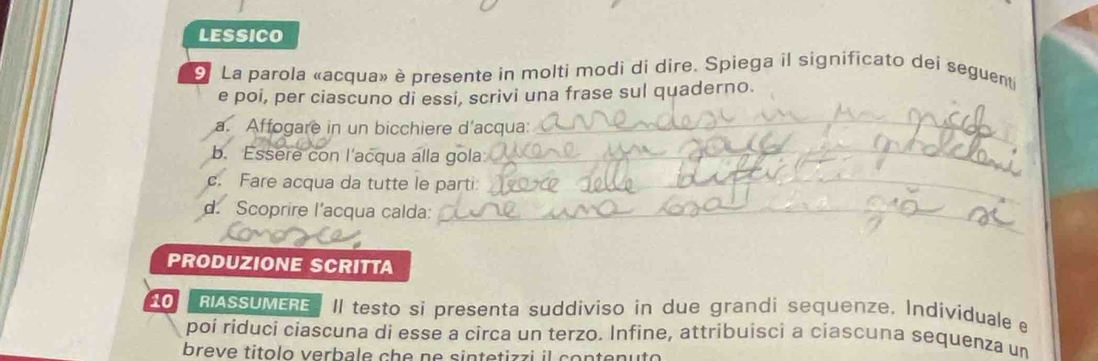 LESSICO
9 La parola «acqua» è presente in molti modi di dire. Spiega il significato dei seguenti
e poi, per ciascuno di essi, scrivi una frase sul quaderno.
a. Affogare in un bicchiere d'acqua: arrendesi in un piccolo
b. Essere con l'acqua alla gola: avere un sacco di
c. Fare acqua da tutte le parti: delle difficoltà
d. Scoprire l'acqua calda: dire una cosa che già si
conosce.
PRODUZIONE SCRITTA
10 RIASSUMERE Il testo si presenta suddiviso in due grandi sequenze. Individuale e
poi riduci ciascuna di esse a circa un terzo. Infine, attribuisci a ciascuna sequenza un
breve titolo verbale che ne sintetizzi il contenuto